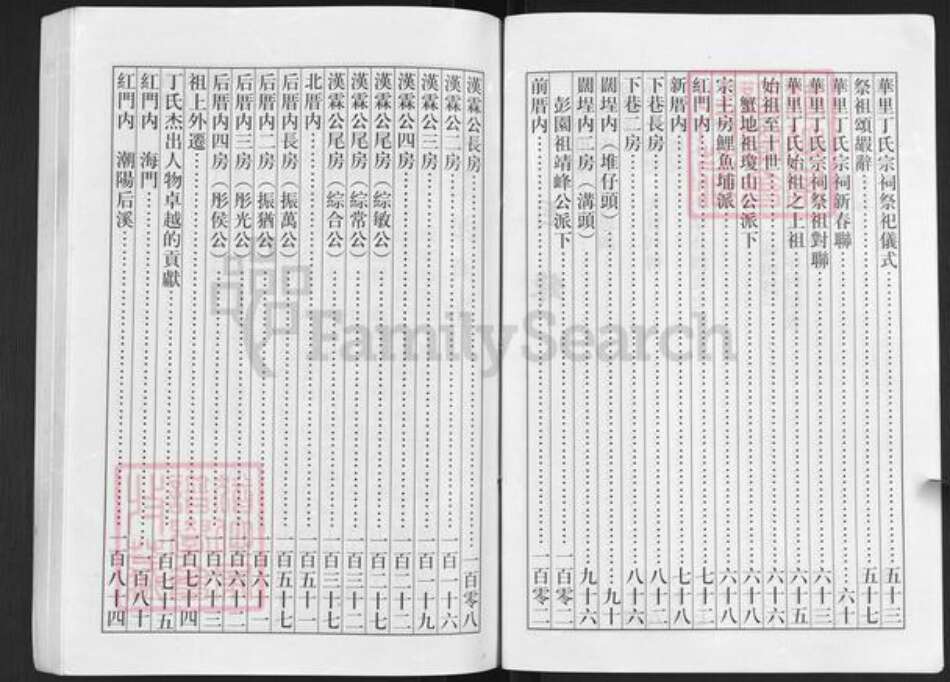 華里丁氏宗祠祭祀儀式……五十三
祭祖頌嘏辭……五十七
華里丁氏宗祠新春聯……六十
華里丁氏宗祠祭祖對聯……六十三
華里丁氏始祖之上祖……六十五
始祖至十世……六十六
蟹地祖瓊山公派下……六十八
宗主房鯉魚埔派……六十八
紅門內……七十二
新厝內……七十八
下巷長房……八十二
下巷二房……八十六
闊埕內（堆仔頭）……九十
闊埕內二房（溝頭）……九十六
彭園祖靖峰公派下……一百零二
前厝內……一百零二
漢霖公長房……一百零八
漢霖公二房……一百一十六
漢霖公三房……一百一十九
漢霖公四房……一百二十二
漢霖公尾房（綜敏公）……一百二十七
漢霖公尾房（綜常公）……一百三十二
漢霖公尾房（綜合公）……一百三十七
北厝內……一百五十一
后厝內長房（振萬公）……一百五十七
后厝內二房（振猶公）……一百六十一
后厝內三房（彤光公）……一百六十二
后厝內四房（彤侯公）……一百六十三
祖上外遷……一百七十四
丁氏杰出人物卓越的貢獻……一百七十五
紅門內　海門……一百八十
紅門內　潮陽后溪……一百八十四
FamilySearch